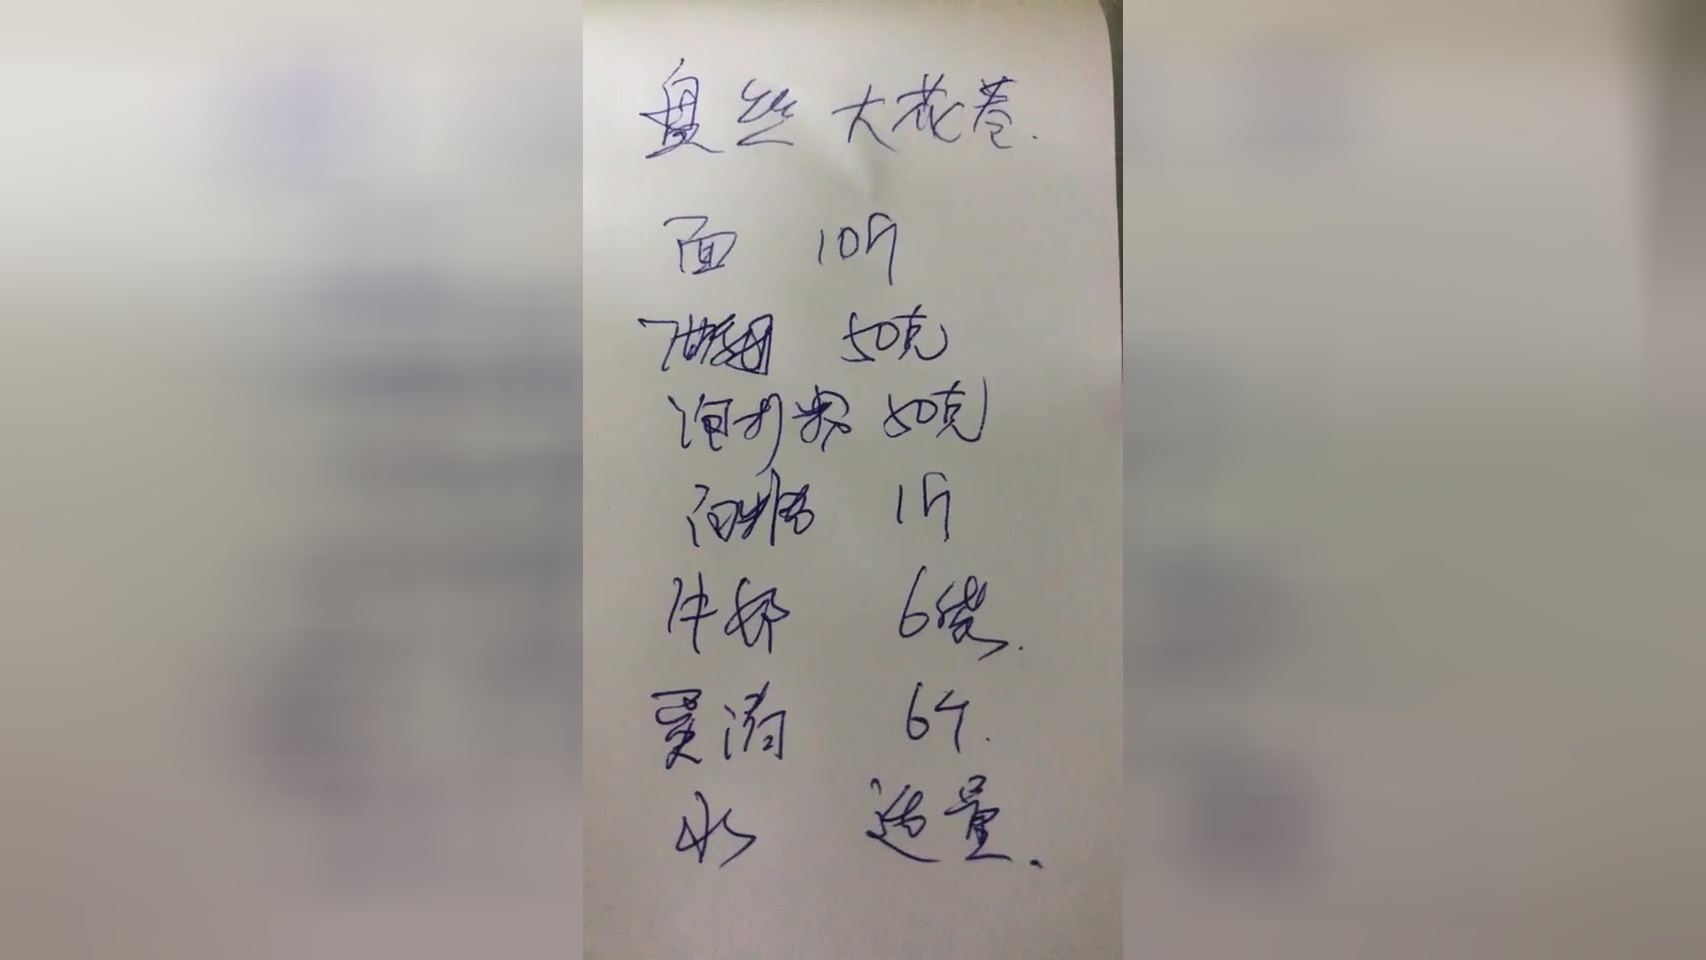 盘丝大花卷.
面 10斤
酵母 50克
泡打粉 50克
白糖 1斤
牛奶 6袋.
鸡蛋 6个.
水 适量.